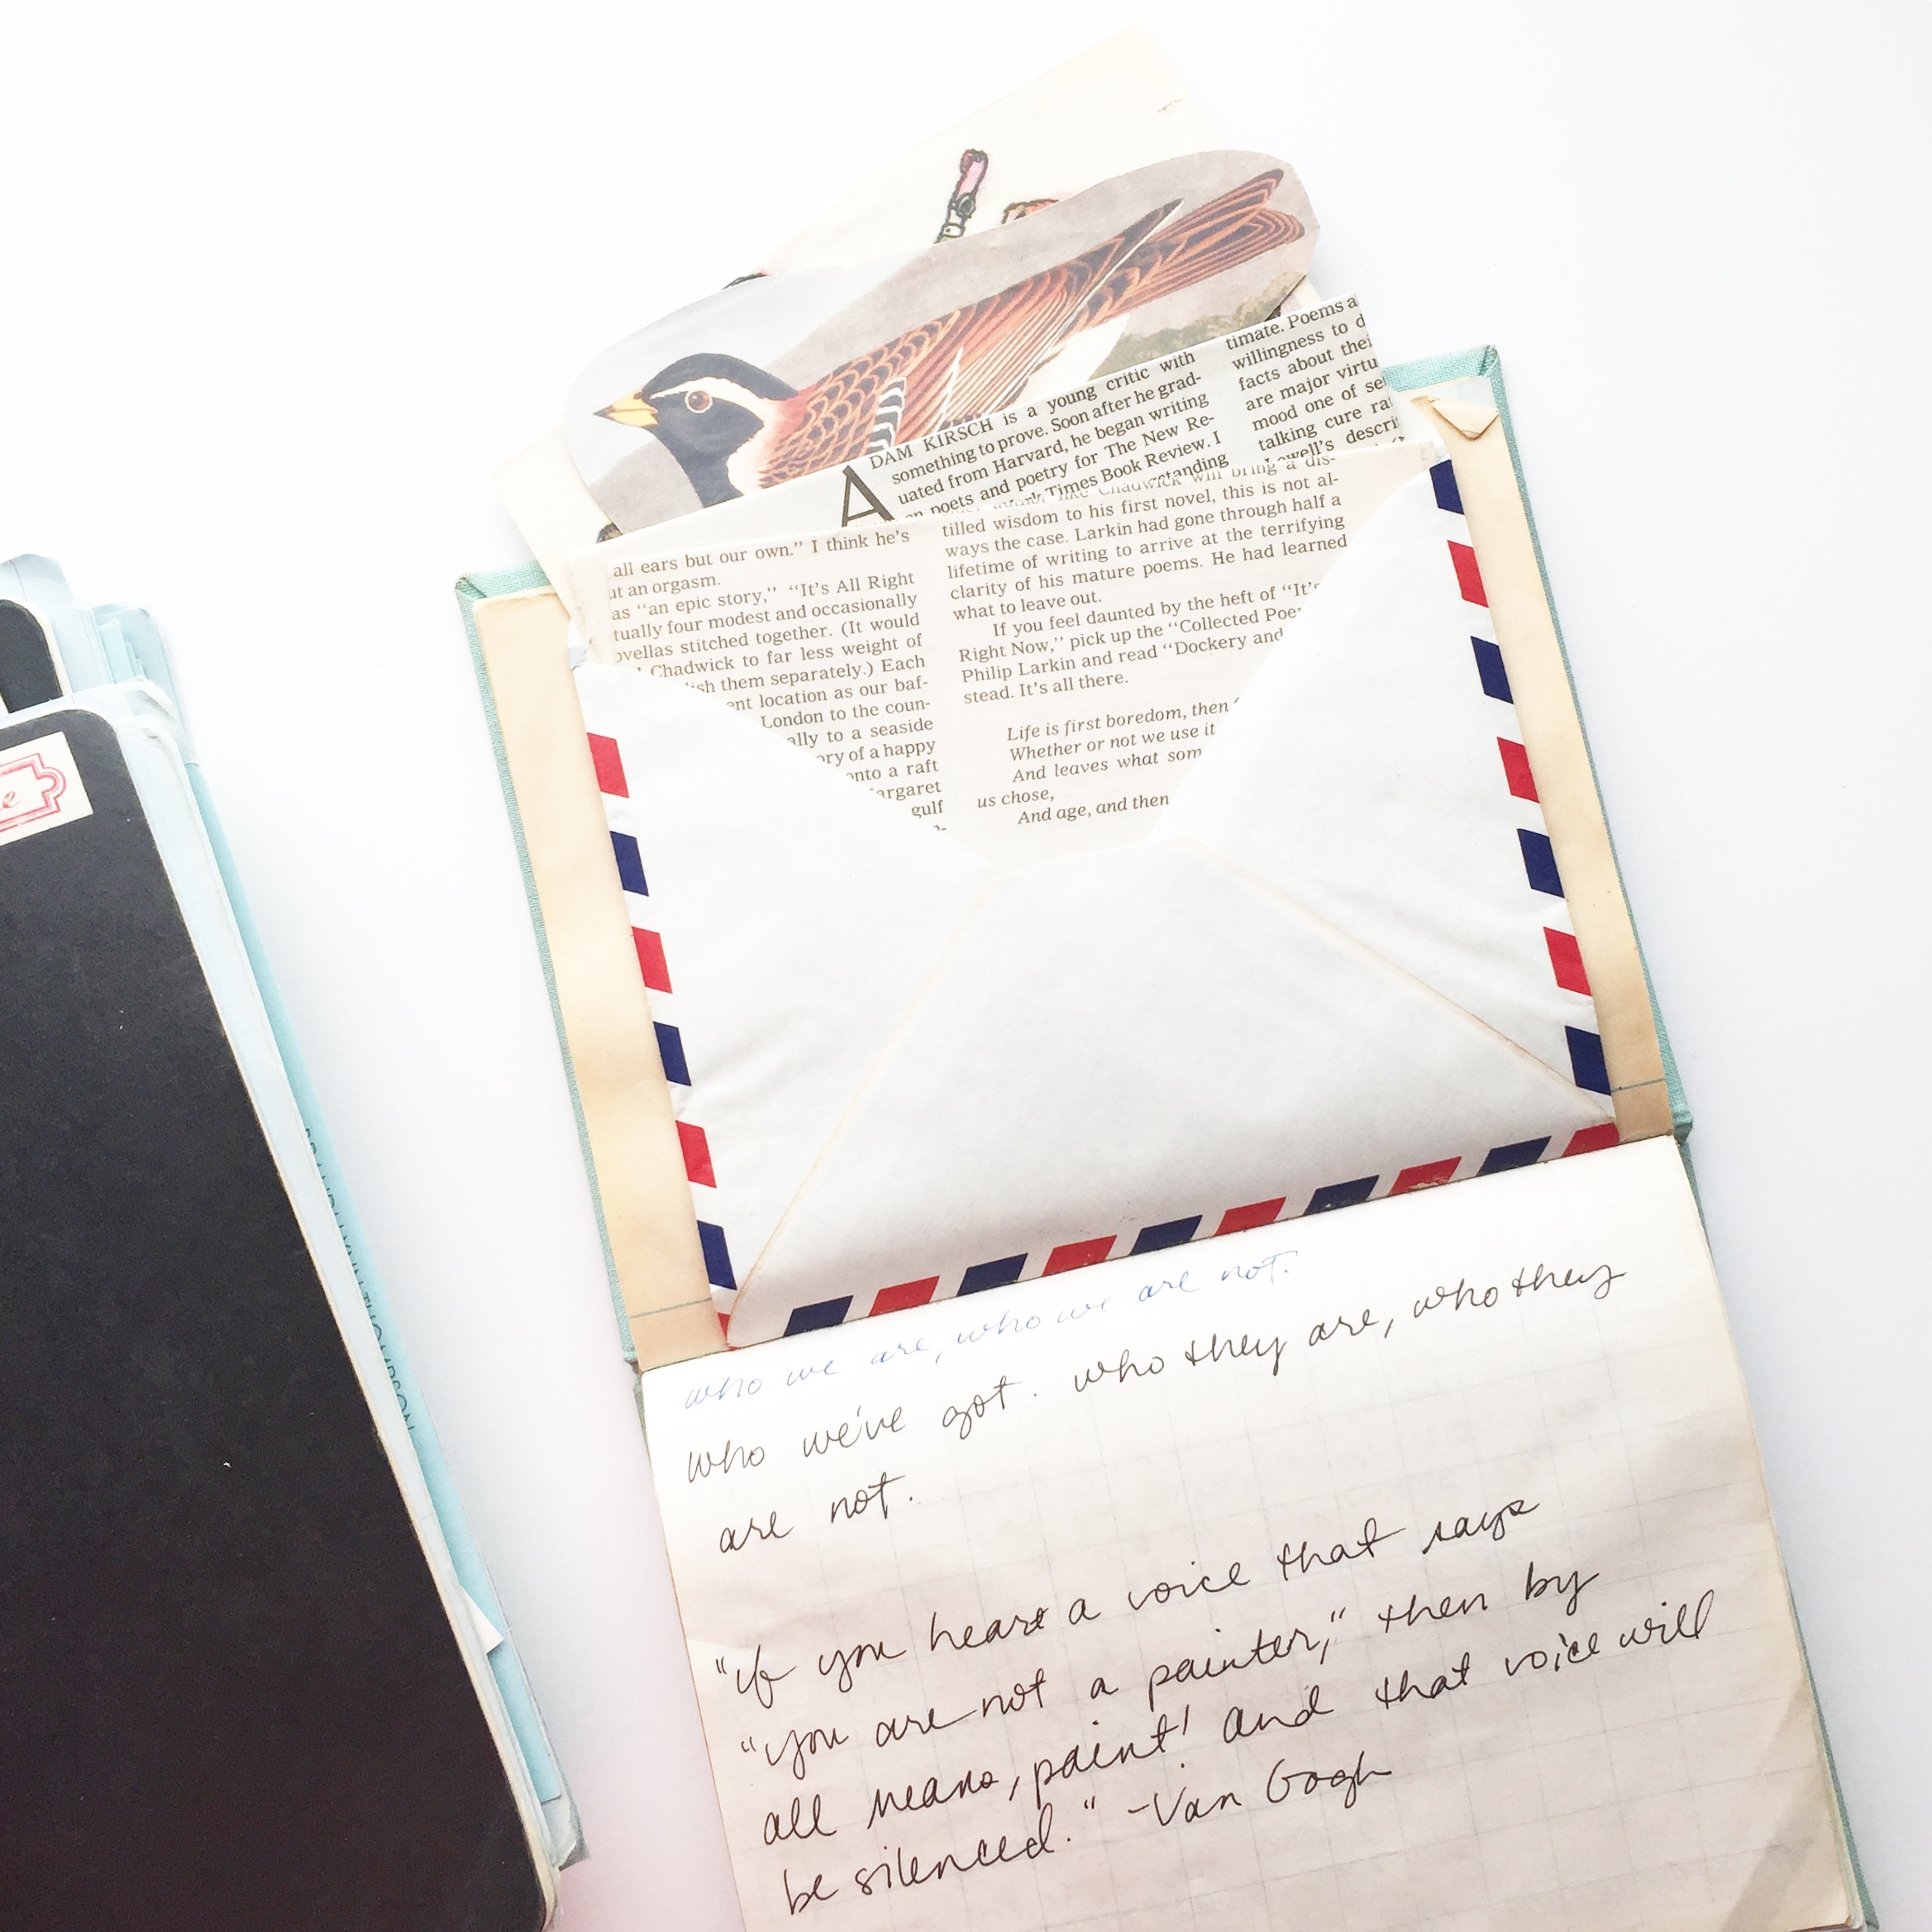 ADAM KIRSCH is a young critic with
something to prove. Soon after he grad-
uated from Harvard, he began writing
on poets and poetry for The New Re-
Times Book Review. I
standing
timate. Poems a
willingness to d
facts about thei
are major virtu
mood one of se
talking cure ra
Lowell's descri
all ears but our own." I think he's
ut an orgasm.
as "an epic story," "It's All Right
tually four modest and occasionally
ovellas stitched together. (It would
Chadwick to far less weight of
ish them separately.) Each
ent location as our baf-
London to the coun-
ally to a seaside
ory of a happy
onto a raft
argaret
gulf
like Chadwick will bring a dis-
tilled wisdom to his first novel, this is not al-
ways the case. Larkin had gone through half a
lifetime of writing to arrive at the terrifying
clarity of his mature poems. He had learned
what to leave out.
If you feel daunted by the heft of "It's
Right Now," pick up the "Collected Poe
Philip Larkin and read "Dockery and
stead. It's all there.
Life is first boredom, then
Whether or not we use it
And leaves what som
us chose,
And age, and then
who we are, who we are not.
who we've got. who they are, who they
are not.
"if you hear a voice that says
"you are not a painter," then by
all means, paint! and that voice will
be silenced." -Van Gogh
THOMPSON